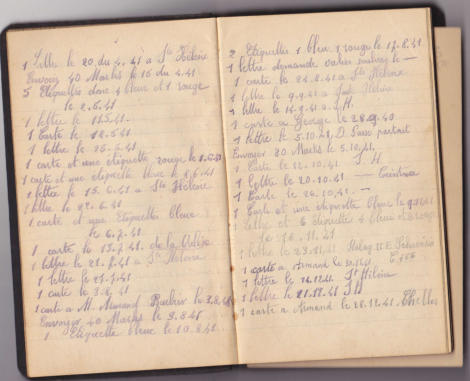 1 lettre le 20 du 4.41 à Ste Hélène
Envoyer 40 Marks le 16 du 4.41
5 Etiquettes dont 4 bleue et 1 rouge
le 2.5.41
1 lettre
1 Carte le 18.5.41
1 lettre le 25.5.41
1 carte et une etiquette rouge le 1.6.41
1 carte et une etiquette bleue le 8.6.41
1 lettre le 15.6.41 à Ste Hélène
1 lettre le 22.6.41
1 carte et une Etiquette bleue
le 6.7.41
1 carte le 13.7.41
1 lettre le 21.7.41 à Ste Hélène
1 lettre le 27.7.41
1 carte le 3.8.41
1 carte à M. Armand le 3.8.41
Envoyer 40 Marks le 9.8.41
1 Etiquette bleue le 10.8.41
2 Etiquettes 1 bleu 1 rouge le 17.8.41
1 lettre demande
1 carte le 24.8.41 à Ste Hélène
1 lettre le 9.9.41 à Ste Hélène
1 lettre le 14.9.41 à S.H.
1 carte à George le 28.9.40
1 lettre le 5.10.41
Envoyer 80 Marks le 5.10.41
1 Carte le 12.10.41 S.H
1 lettre le 20.10.41
1 Carte le 26.10.41
1 Cart et une etiquette bleue le 9.11.41
1 lettre et 5 Etiquettes 4 bleu et 1 rouge
le 16.11.41
1 lettre le 23.11.41
1 carte à Armand le
1 lettre le 14.12.41 St Hélène
1 lettre le 21.12.41 S.H
1 carte à Armand le 28.12.41 Chelles